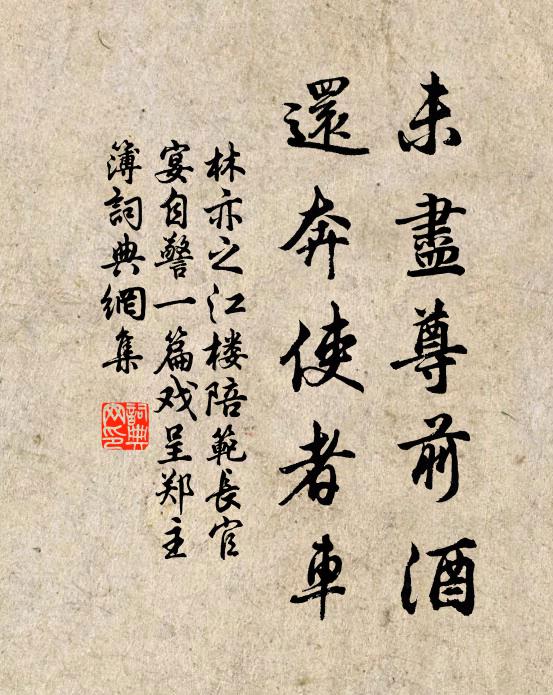 未盡尊前酒
還奔使者車
林亦之江楼陪範長官
宴自警一篇戏呈郑主
簿詞典網集
詞典网印